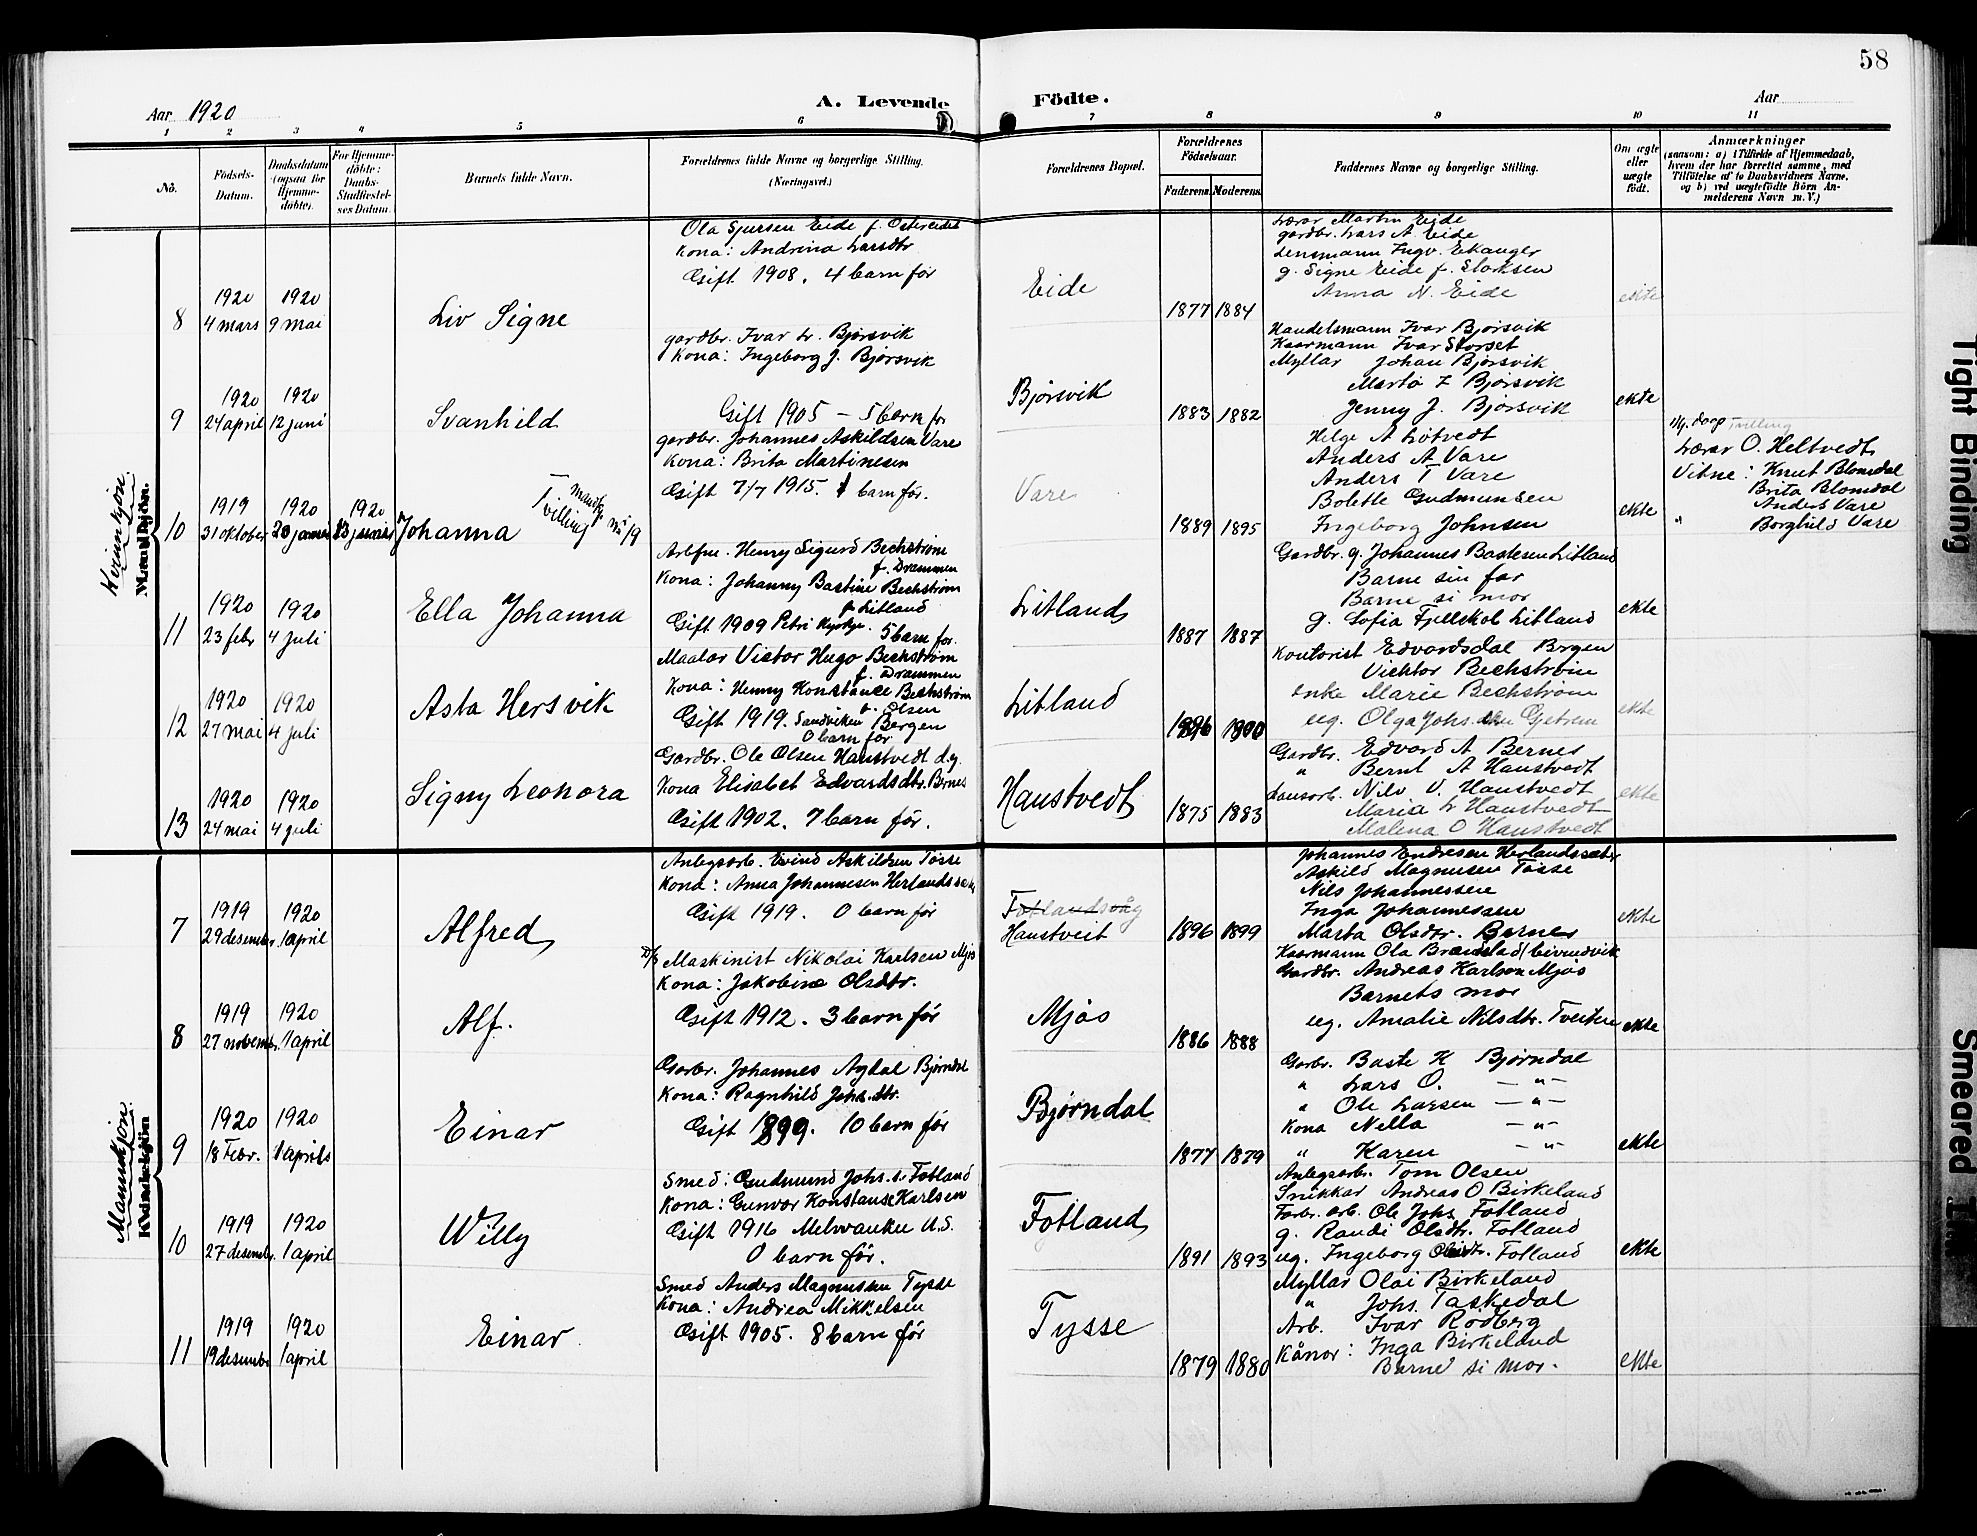 58
Aar 1920
A. Levende Födte.
Aar
1 2 3 4 5 6 7 8 9 10 11
No.
Födsels-Datum.
Daabsdatum (ogsaa for Hjemme-døbte).
For Hjemme-døbte: Daabs-Stadfæstel-ses Datum.
Barnets fulde Navn.
Forældrenes fulde Navne og borgerlige Stilling. (Næringsvei.)
Forældrenes Bopæl.
Forældrenes Födselsaar.
Faderens Moderens.
Faddernes Navne og borgerlige Stilling.
Om ægte eller uægte födt.
Anmærkninger
(saasom: a) i Tilfælde af Hjemmedaab, hvem der har forrettet samme, med Tilföielse af to Daabsvidners Navne, og b) ved uægtefödte Börn An-melderens Navn m. V.)
Kvinnkjøn.
Mandkjön.
8
1920
4 mars
1920
9 mai
Liv Signe
Ola Sjursen Eide f. Ostereidet
Kona: Andrina Larsdtr
Gift 1908. 4 barn før
Eide
1877 1884
Lærar Martin Eide
gardbr. Lars A. Eide
Lensmann Ingv. Ekanger
g. Signe Eide f. Storksen
Anna N. Eide
ekte
9
1920
24 april
1920
12 juni
Svanhild
gardbr. Ivar Lr. Bjørsvik
Kona: Ingeborg J. Bjørsvik
Gift 1905 – 5 barn før
Bjørsvik
1883 1882
Handelsmann Ivar Bjørsvik
Kaarmann Ivar Storset
Myllar Johan Bjørsvik
Marta I Bjørsvik
Jenny J. Bjørsvik
ekte
10
1919
31 oktober
1920
20 januar
1920
13 januar
Johanna
Tvilling
Mandkj. nr 19
gardbr. Johannes Askildsen Vare
Kona: Brita Martinesen
Gift 7/7 1915. 1 barn før.
Vare
1889 1895
Helge A Løtvedt
Anders A Vare
Anders T Vare
Bolette Gudmunsen
Ingeborg Johnsen
ekte
Hj. daap Tvilling
Lærar O. Heltvedt
Vitne: Knut Blomdal
Brita Blomdal
Anders Vare
" Borghild Vare
11
1920
23 febr
1920
4 juli
Ella Johanna
Henry Sigurd Bechstrøm
f. Drammen
Kona: Johanny Bastine Bechstrøm
f. Litland
Gift 1909 Petri Kyrkje. 5 barn før.
Litland
1887 1887
Gardbr. g. Johannes Bastesen Litland
Barne sin far
Barne si mor
g. Sofia Fjellskol Litland
ekte
12
1920
27 mai
1920
4 juli
Asta Hersvik
Maalar Victor Hugo Bechstrøm
f. Drammen
Kona: Henny Konstance Bechstrøm
f. Olsen
Gift 1919. Sandviken Bergen
0 barn før
Litland
1896 1900
Kontorist Edvardsdal Brgen
Vichtor Bechstrøm
enke Marie Bechstrøm
ug. Olga Johs. Gjetrem
ekte
13
1920
24 mai
1920
4 juli
Signy Leonora
Gardbr. Ole Olsen Haustvedt d.y.
Kona Elisabet Edvardsdtr. Bernes
Gift 1902. 7 barn før.
Haustvedt
1875 1883
Gardbr. Edvard A Bernes
" Bernt A Haustvedt
Lausarb. Nils O. Haustvedt
Maria Lr Haustvedt
Malena O Haustvedt
ekte
Mannkjøn.
Kvindekjön
7
1919
29 desember
1920
1 april
Alfred
Anlegsarb. Eivind Askildsen Tøsse
Kona: Anna Johannesen Herlandssæter
Gift 1919. 0 barn før
Fotlandsvåg
Haustveit
1896 1899
Johannes Endresen Herlandssæter
Askild Magnusen Tøsse
Nils Johannessen
Inga Johannessen
Marta Olsdtr. Bernes
ekte
8
1919
27 november
1920
1 april
Alf.
D/S Maskinist Nikolai Karlsen Mjøs
Kona: Jakobine Olsdtr.
Gift 1912. 3 barn før
Mjøs
1886 1888
Kaarmann Ola Eivindvik
Gardbr. Andreas Karlsen Mjøs
Barnets mor
ug. Amalie Nilsdtr. Tveiten
ekte
9
1920
18 Febr.
1920
1 april
Einar
Garbr. Johannes Andal Bjørndal
Kona: Ragnhild Johs.dtr.
Gift 1899. 10 barn før
Bjørndal
1877 1879
Garbr. Baste H Bjørndal
" Lars O. – " –
" Ole Larsen – " –
Kona Nella – " –
" Karen – " –
ekte
10
1919
27 desembr.
1920
1 april
Willy
Smed: Gudmund Johs. Fotland
Kona: Gunvor Konstanse Karlsen
Gift 1916 Melwaukee U.S.
0 barn før.
Fotland
1891 1893
Anlegsarb. Tom Olsen
Snikkar Andreas O Birkeland
Fabr. arb. Ole Johs. Fotland
g. Randi Olsdtr. Fotland
ug. Ingeborg Olsdtr. Fotland
ekte
11
1919
19 desembr
1920
1 april
Einar
Smed Anders Magnussen Tysse
Kona: Andrea Mikkelsen
Gift 1905. 8 barn før
Tysse
1879 1880
Myllar Olai Birkeland
" Johs. Taskedal
Arb. Ivar Rødberg
Kånor: Inga Birkeland
Barne si mor.
ekte
Tight Binding
Smeared